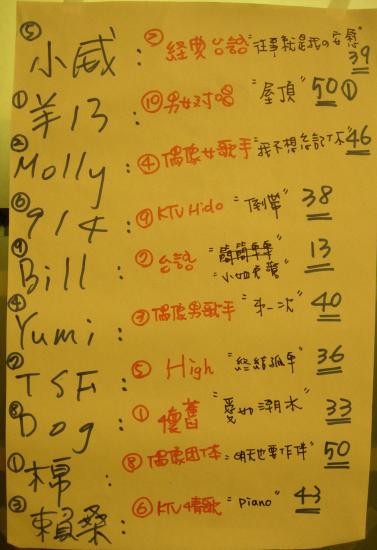 ⑤小威: ⑦経典台語"往事就是我的安慰" 39
①羊13: ⑩男女对唱"屋頂" 50①
②Molly: ④偶像女歌手"我不想忘記你" 46
⑥914: ⑨KTV Hido "倒帶" 38
⑨Bill: ②台語" 小姐免驚" 13
④Yumi: ③偶像男歌手"第一次" 40
⑦TSF: ⑤High "終結孤單" 36
⑧Dog: ①懷舊"愛如潮水" 33
①棉: ⑧偶像団体"明天也要作伴" 50
③賴桑: ⑥KTV情歌"piano" 43